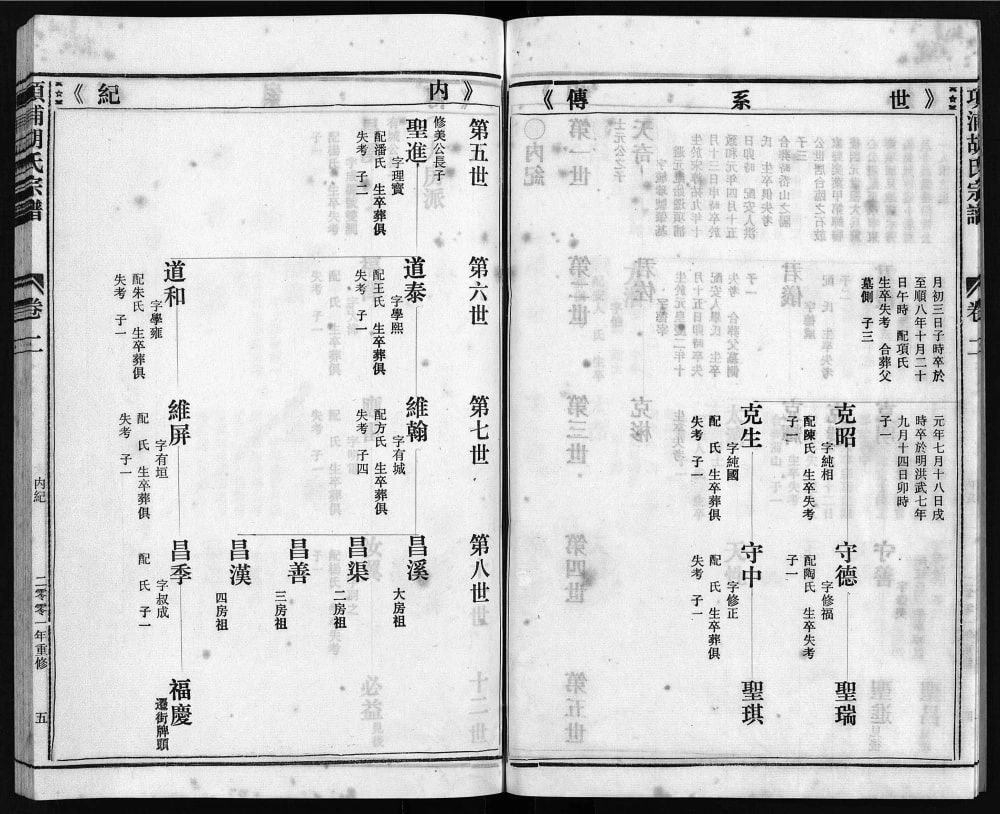 世系傳
月初三日子時卒於
至順八年十月二十
日午時　配項氏
生卒失考　合葬父
墓側　子三
元年七月十八日戌
時卒於明洪武七年
九月十四日卯時
子一
克昭
字純相
配陳氏　生卒失考
子一
守德
字修福
配陶氏　生卒失考
子一
聖瑞
克生
字純國
配　氏　生卒葬俱
失考　子一
守中
字修正
配　氏　生卒葬俱
失考　子一
聖琪
內紀
第五世
第六世
第七世
第八世
修美公長子
聖進
字理寳
配潘氏　生卒葬俱
失考　子二
道泰
字學熙
配王氏　生卒葬俱
失考　子一
維翰
字有城
配方氏　生卒葬俱
失考　子四
昌溪
大房祖
昌渠
二房祖
昌善
三房祖
昌漢
四房祖
道和
字學雍
配朱氏　生卒葬俱
失考　子一
維屏
字有垣
配　氏　生卒葬俱
失考　子一
昌季
字叔成
配　氏　子一
福慶
遷街牌頭
胡氏宗譜
卷二
內紀
二零零一年重修
五